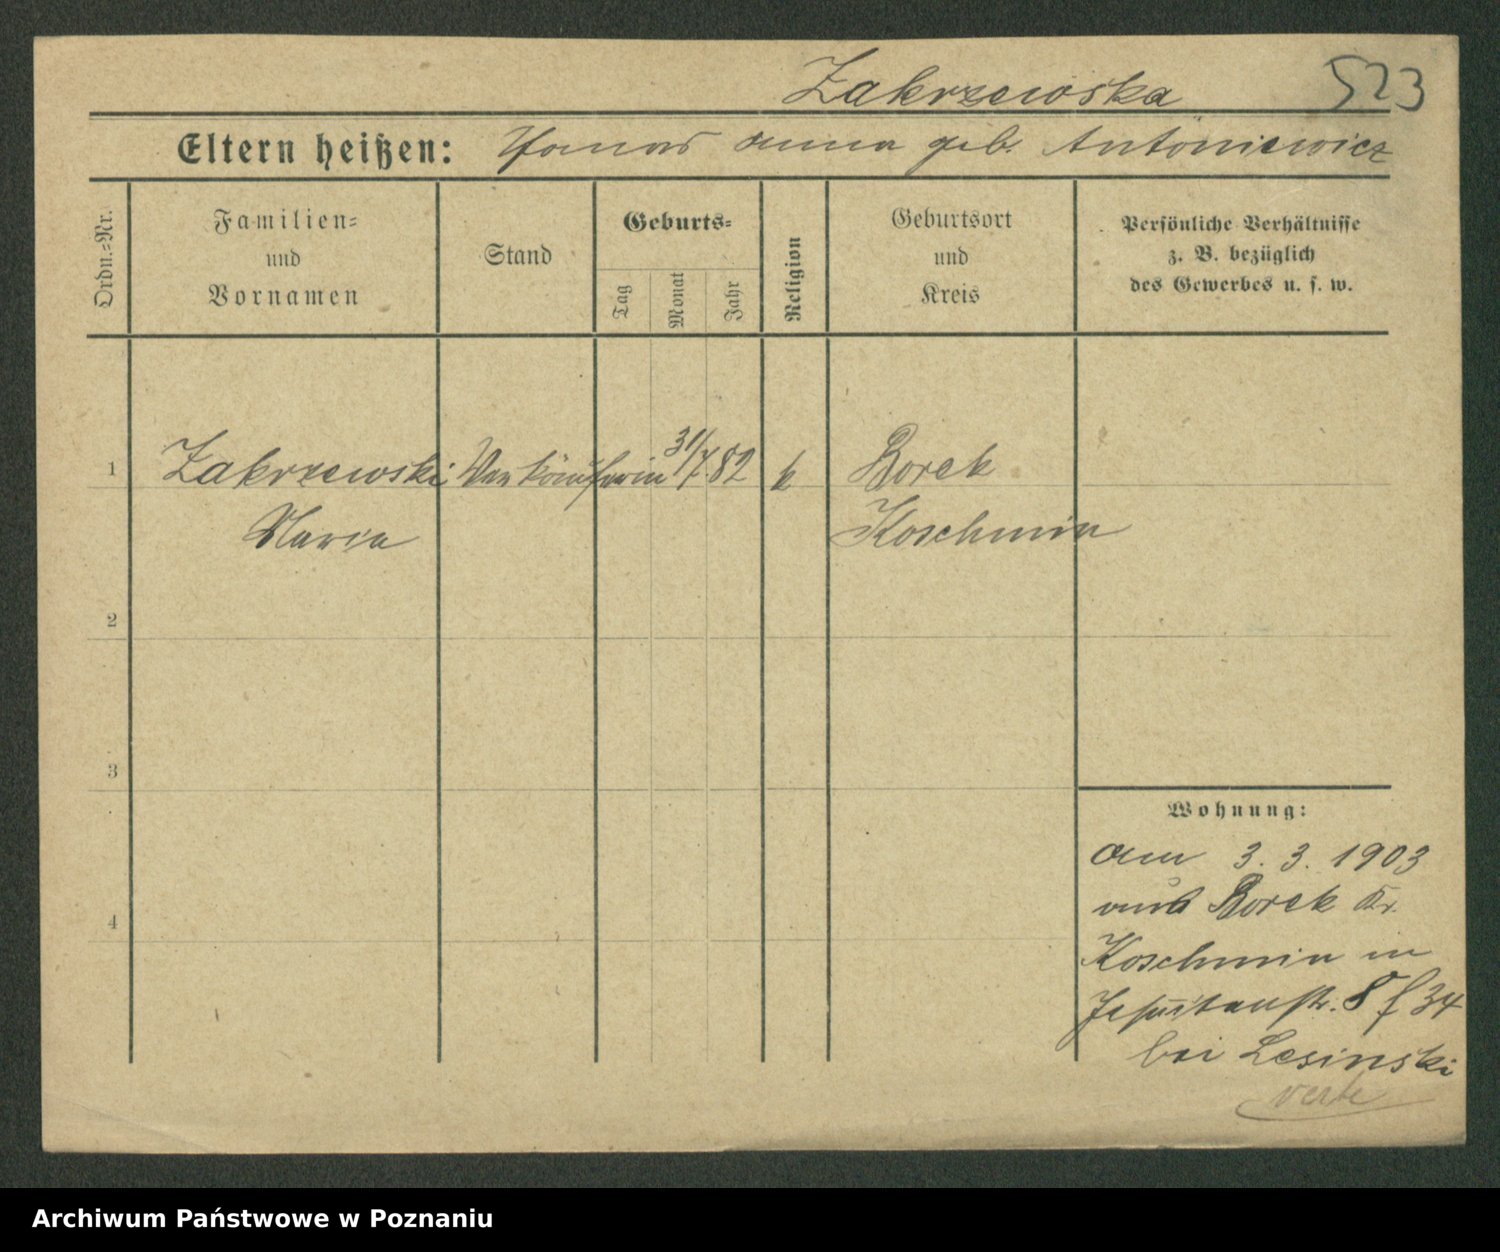 Zakrzewska 523
Eltern heißen: Thomas Anna geb. Antoniewicz
Ordn.=Nr.
Familien=
und
Vornamen
Stand
Geburts=
Tag
Monat
Jahr
Religion
Geburtsort
und
Kreis
Persönliche Verhältnisse
z. B. bezüglich
des Gewerbes u. s. w.
1 Zakrzewski Verkäuferin 31/7.82 k Borek
Maria Koschmin
2
3
4
Wohnung:
am 3. 3. 1903
aus Borek Kr.
Koschmin in
Jesuitenstr. 8 f 34
bei Lesinski
verte
Archiwum Państwowe w Poznaniu